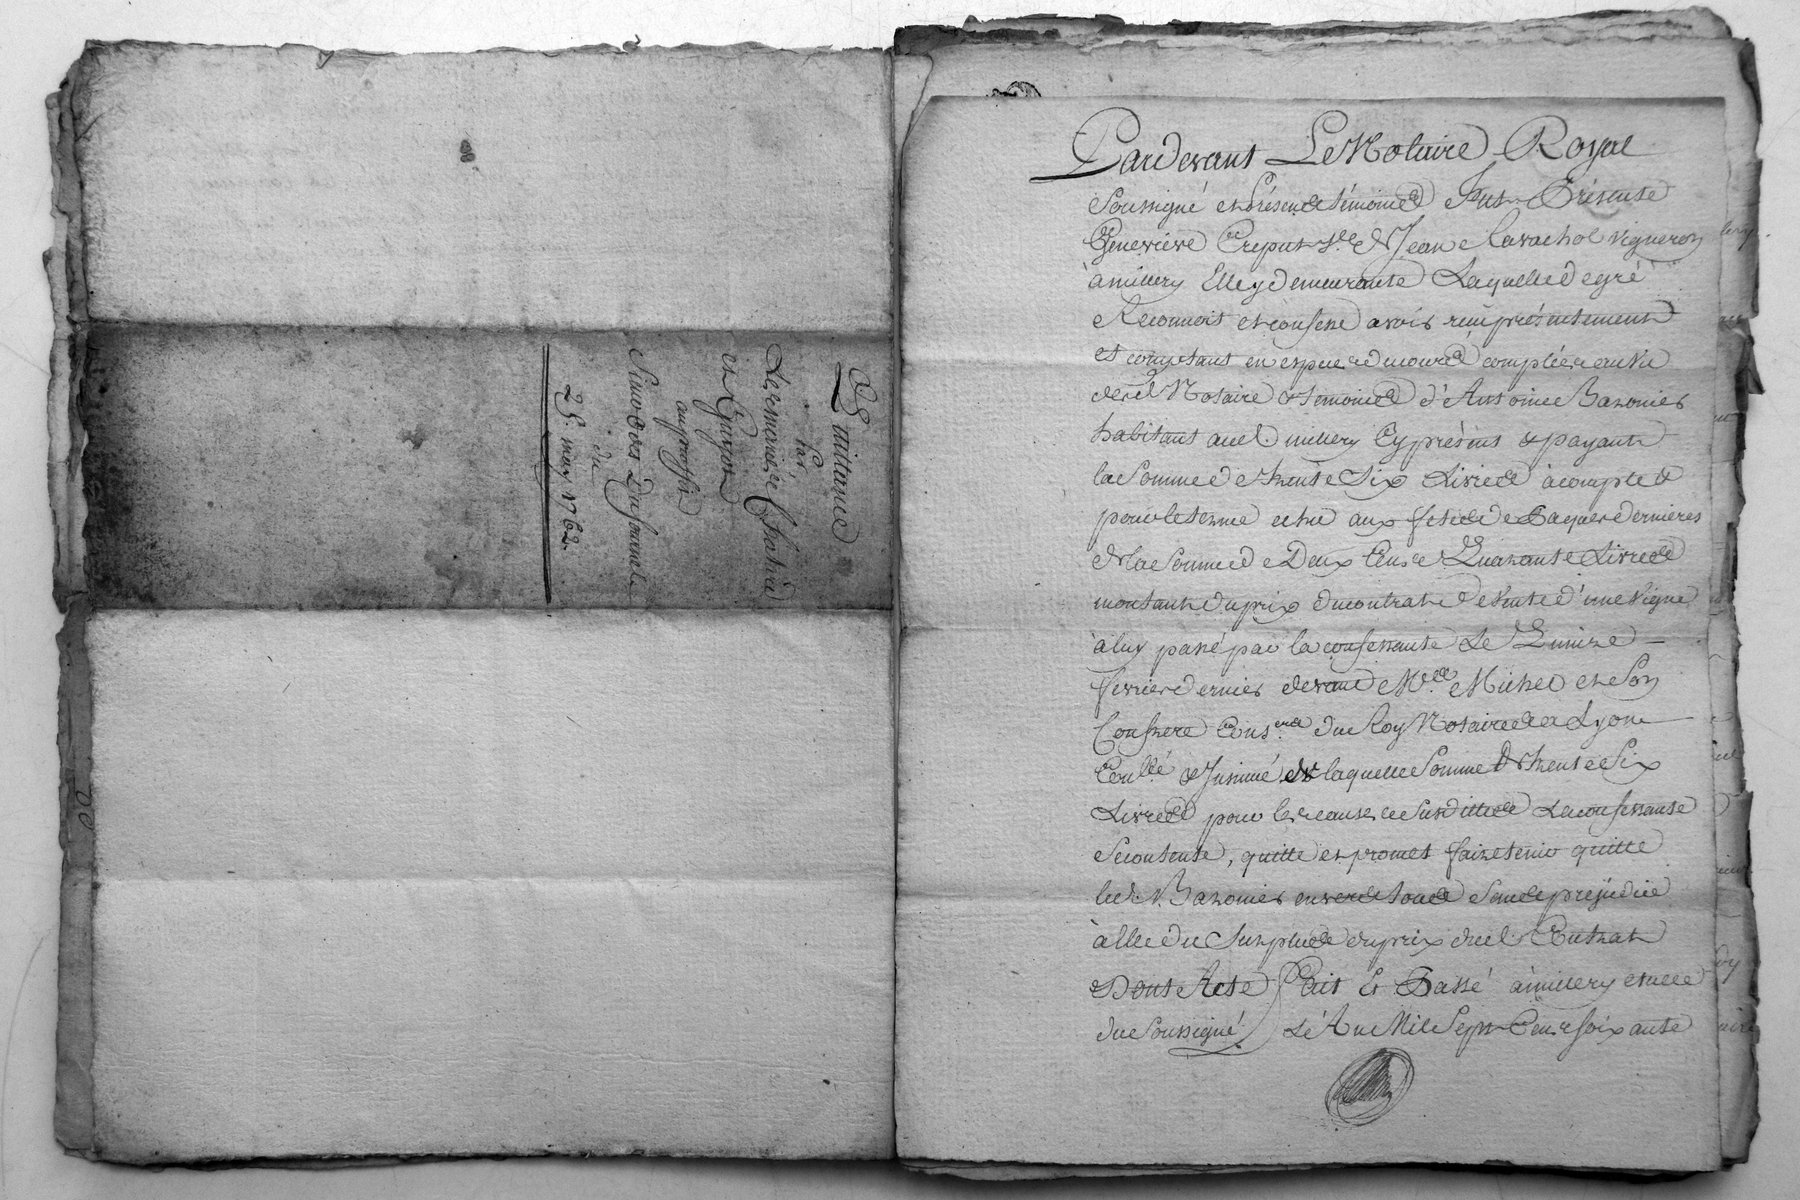 Quittance
par
Les mariés Chatard
et Guyon
au proffit
Sieur
du
25. may 1762.
Pardevant Le Notaire Royal
Soussigné et présens témoins Fut Présente
Geneviève Creput Vve de Jean Ravachol vigneron
à millery Elle y demeurante Laquelle de gré
Reconnoit et confesse avoir reçu présentement
et comptant en especes de cours comptées au vu
desd. Notaire & temoins d'Antoine Bazonier
habitant aud. millery Cy présent & payant
la Somme de trente Six Livres à compte &
pour le terme echu aux fetes de Paques dernieres
de la Somme de Deux Cens Quarante Livres
montant du prix du contrat de vente d'une vigne
à luy passé par la confessante Le Quinze
fevrier dernier devant Mes Michel et Son
Confrere Consers du Roy Notaires à Lyon
Conllé & Insinué de laquelle Somme de trente Six
Livres pour les causes susdittes La confessante
Se contente, quitte et promet faire tenir quitte
led. Bazonier envers tous Sans préjudice
à elle du Surplus du prix dud. Contrat
Dont Acte Fait & Passé à millery etude
du Soussigné Lé An Mil Sept Cent Soixante